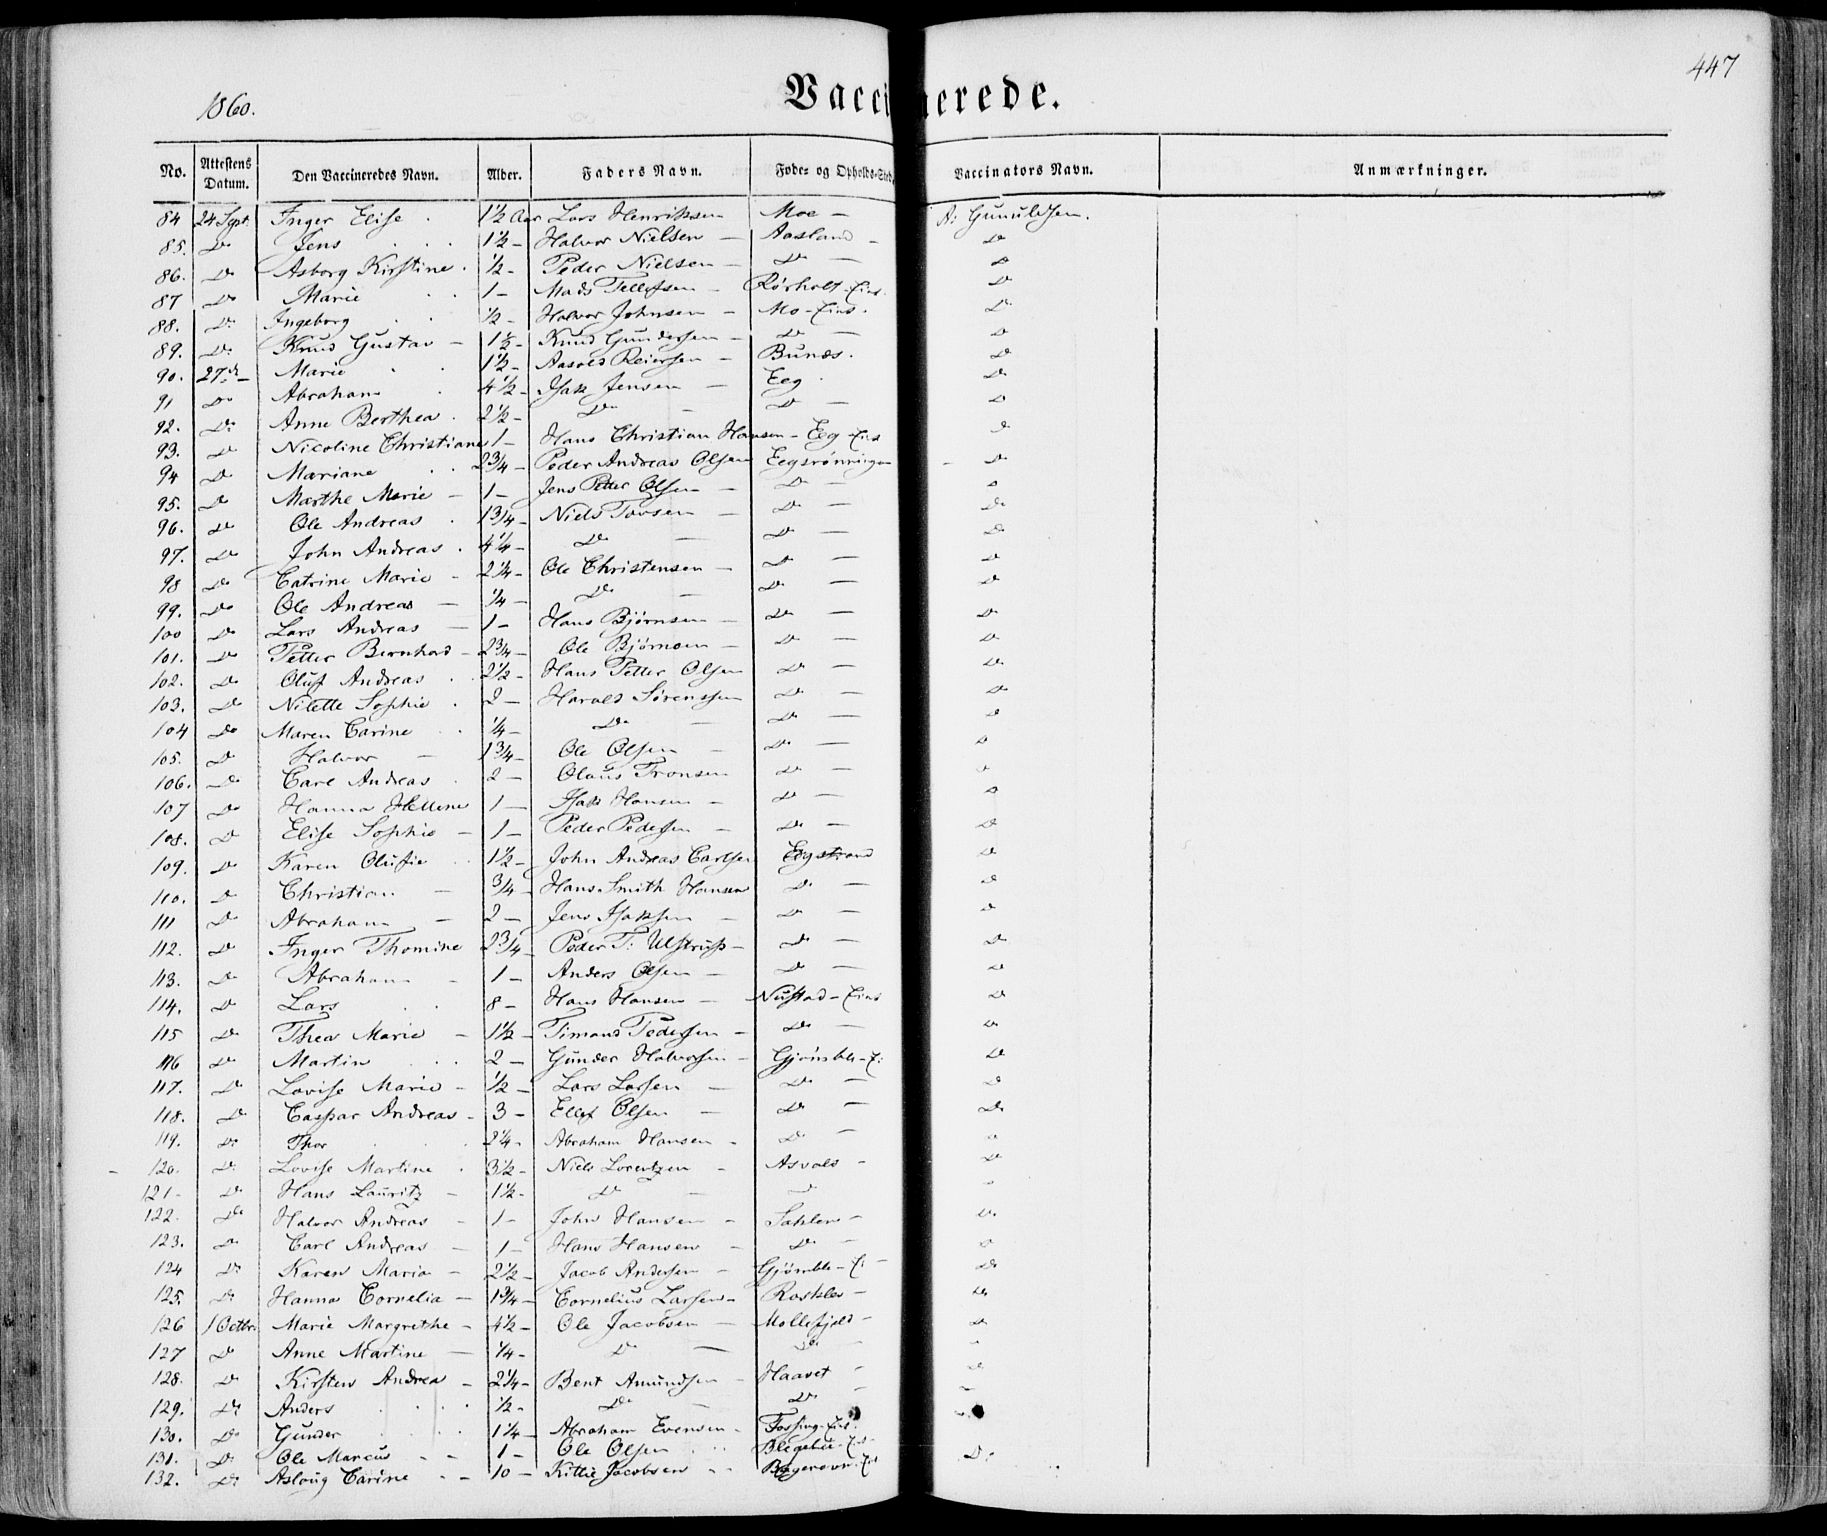 447
1860.
Vaccinerede.
No. Attestens Datum. Den Vaccineredes Navn. Alder. Faders Navn. Føde- og Opholds-Sted. Vaccinators Navn. Anmærkninger.
84 24 Sept. Inger Elise 1½ Aar Lars Henriksen Moe - A: Gunulfsen.
85. Do Jens 1½ - Halvor Nielsen - Aasland - Do
86. Do Asborg Kirstine. ½ - Peder Nielsen - Do - Do
87 Do Marie 1 - Mads Tellefsen - Rørholt-Eies. Do
88. Do Ingeborg ½ - Halvor Johnsen - Mo-Eies. Do
89. Do Knud Gustav - 1½ - Knud Gundersen - Do - Do
90. 27de - Marie 1½ - Aasold Reiersen - Bunæs. Do
91 Do Abraham 4½ - Isak Jensen - Eeg. Do
92. Do Anne Berthea. 2½ - Do - Do - Do
93. Do Nicoline Christiane 1 - Hans Christian Hansen - Eeg-Eies Do
94 Do Mariane 2¾ - Peder Andreas Olsen Eegsrønningen - Do
95. Do Marthe Marie - 1 - Jens Petter Olsen - Do - Do
96. Do Ole Andreas. 1¾ - Niels Tovsen - Do - Do
97. Do John Andreas. 4¼ - Do - Do - Do
98 Do Catrine Marie - 2¼ - Ole Christensen - Do - Do
99. Do Ole Andreas - ¼ - Do - Do - Do
100 Do Lars Andreas - 1 - Hans Bjørnsen - Do - Do
101. Do Petter Bernhard - 2¾ - Ole Bjørnsen - Do - Do
102. Do Oluf Andreas 2½ - Hans Petter Olsen Do - Do
103. Do Nilette Sophie. 2 - Harald Sørenssen Do - Do
104 Do Maren Carine ¼ - Do - Do - Do
105. Do Halvor - 1¾ - Ole Olsen - Do - Do
106. Do Carl Andreas. 2 - Olaus Tronsen Do - Do
107 Do Hanna Hellene 1 - Isak Hansen - Do - Do
108. Do Elise Sophie - 1 - Peder Pedersen - Do - Do
109. Do Karen Olufie 1½ - John Andreas Carlsen Eegstrand Do
110. Do Christian - ¾ - Hans Smith Hansen Do - Do
111 Do Abraham - 2 - Jens Isaksen - Do - Do
112. Do Inger Thomine 2¾ - Peder T: Ulstrup - Do - Do
113. Do Abraham - 1 - Anders Olsen - Do - Do
114. Do Lars 8 - Hans Hansen - Nustad-Eies Do
115 Do Thea Marie - 1½ - Timand Pedersen - Do - Do
116 Do Martin 2 - Gunder Halvorsen - Gjømble-E: Do
117. Do Lovise Marie - ½ - Lars Larsen - Do - Do
118. Do Caspar Andreas - 3 - Ellef Olsen - Do - Do
119. Do Thor 2¼ - Abraham Hansen - Do - Do
120. Do Lovise Martine. 3½ - Niels Lorentzen - Asvald - Do
121 - Do Hans Lauritz - 1½ - Do - Do Do
122. Do Halvor Andreas - 1 - John Hansen - Do
123. Do Carl Andreas - 1 - Hans Hansen - Do - Do
124 Do Karen Maria - 2½ - Jacob Andersen - Gjømble-E: - Do
125. Do Hanna Cornelia - 1¾ - Cornelius Larsen - Do
126 1 Octbr. Marie Margrethe - 4½ - Ole Jacobsen - Mollefjeld - Do
127 Do Anne Martine - ¼ - Do - Do Do
128. Do Kirsten Andrea - 2¼ - Bent Amundsen - Haavet - Do
129. Do Anders ½ - Do - Do -
130. Do Gunder 1¼ - Abraham Evensen - Fossing-Eies.
131. Do Ole Marcus - - 1 - Ole Olsen Do.
132. Do Aslaug Carine - - 10 - Kittil Jacobsen